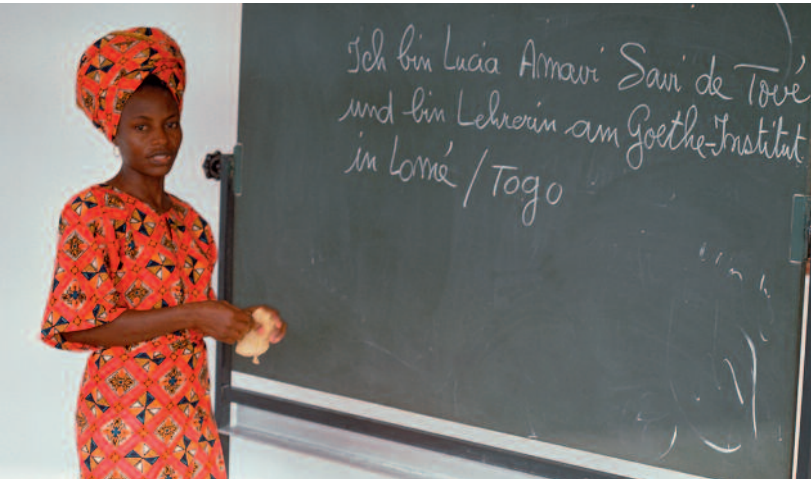 Ich bin Lucia Amavi Savi de Tové
und bin Lehrerin am Goethe-Institut
in Lomé / Togo